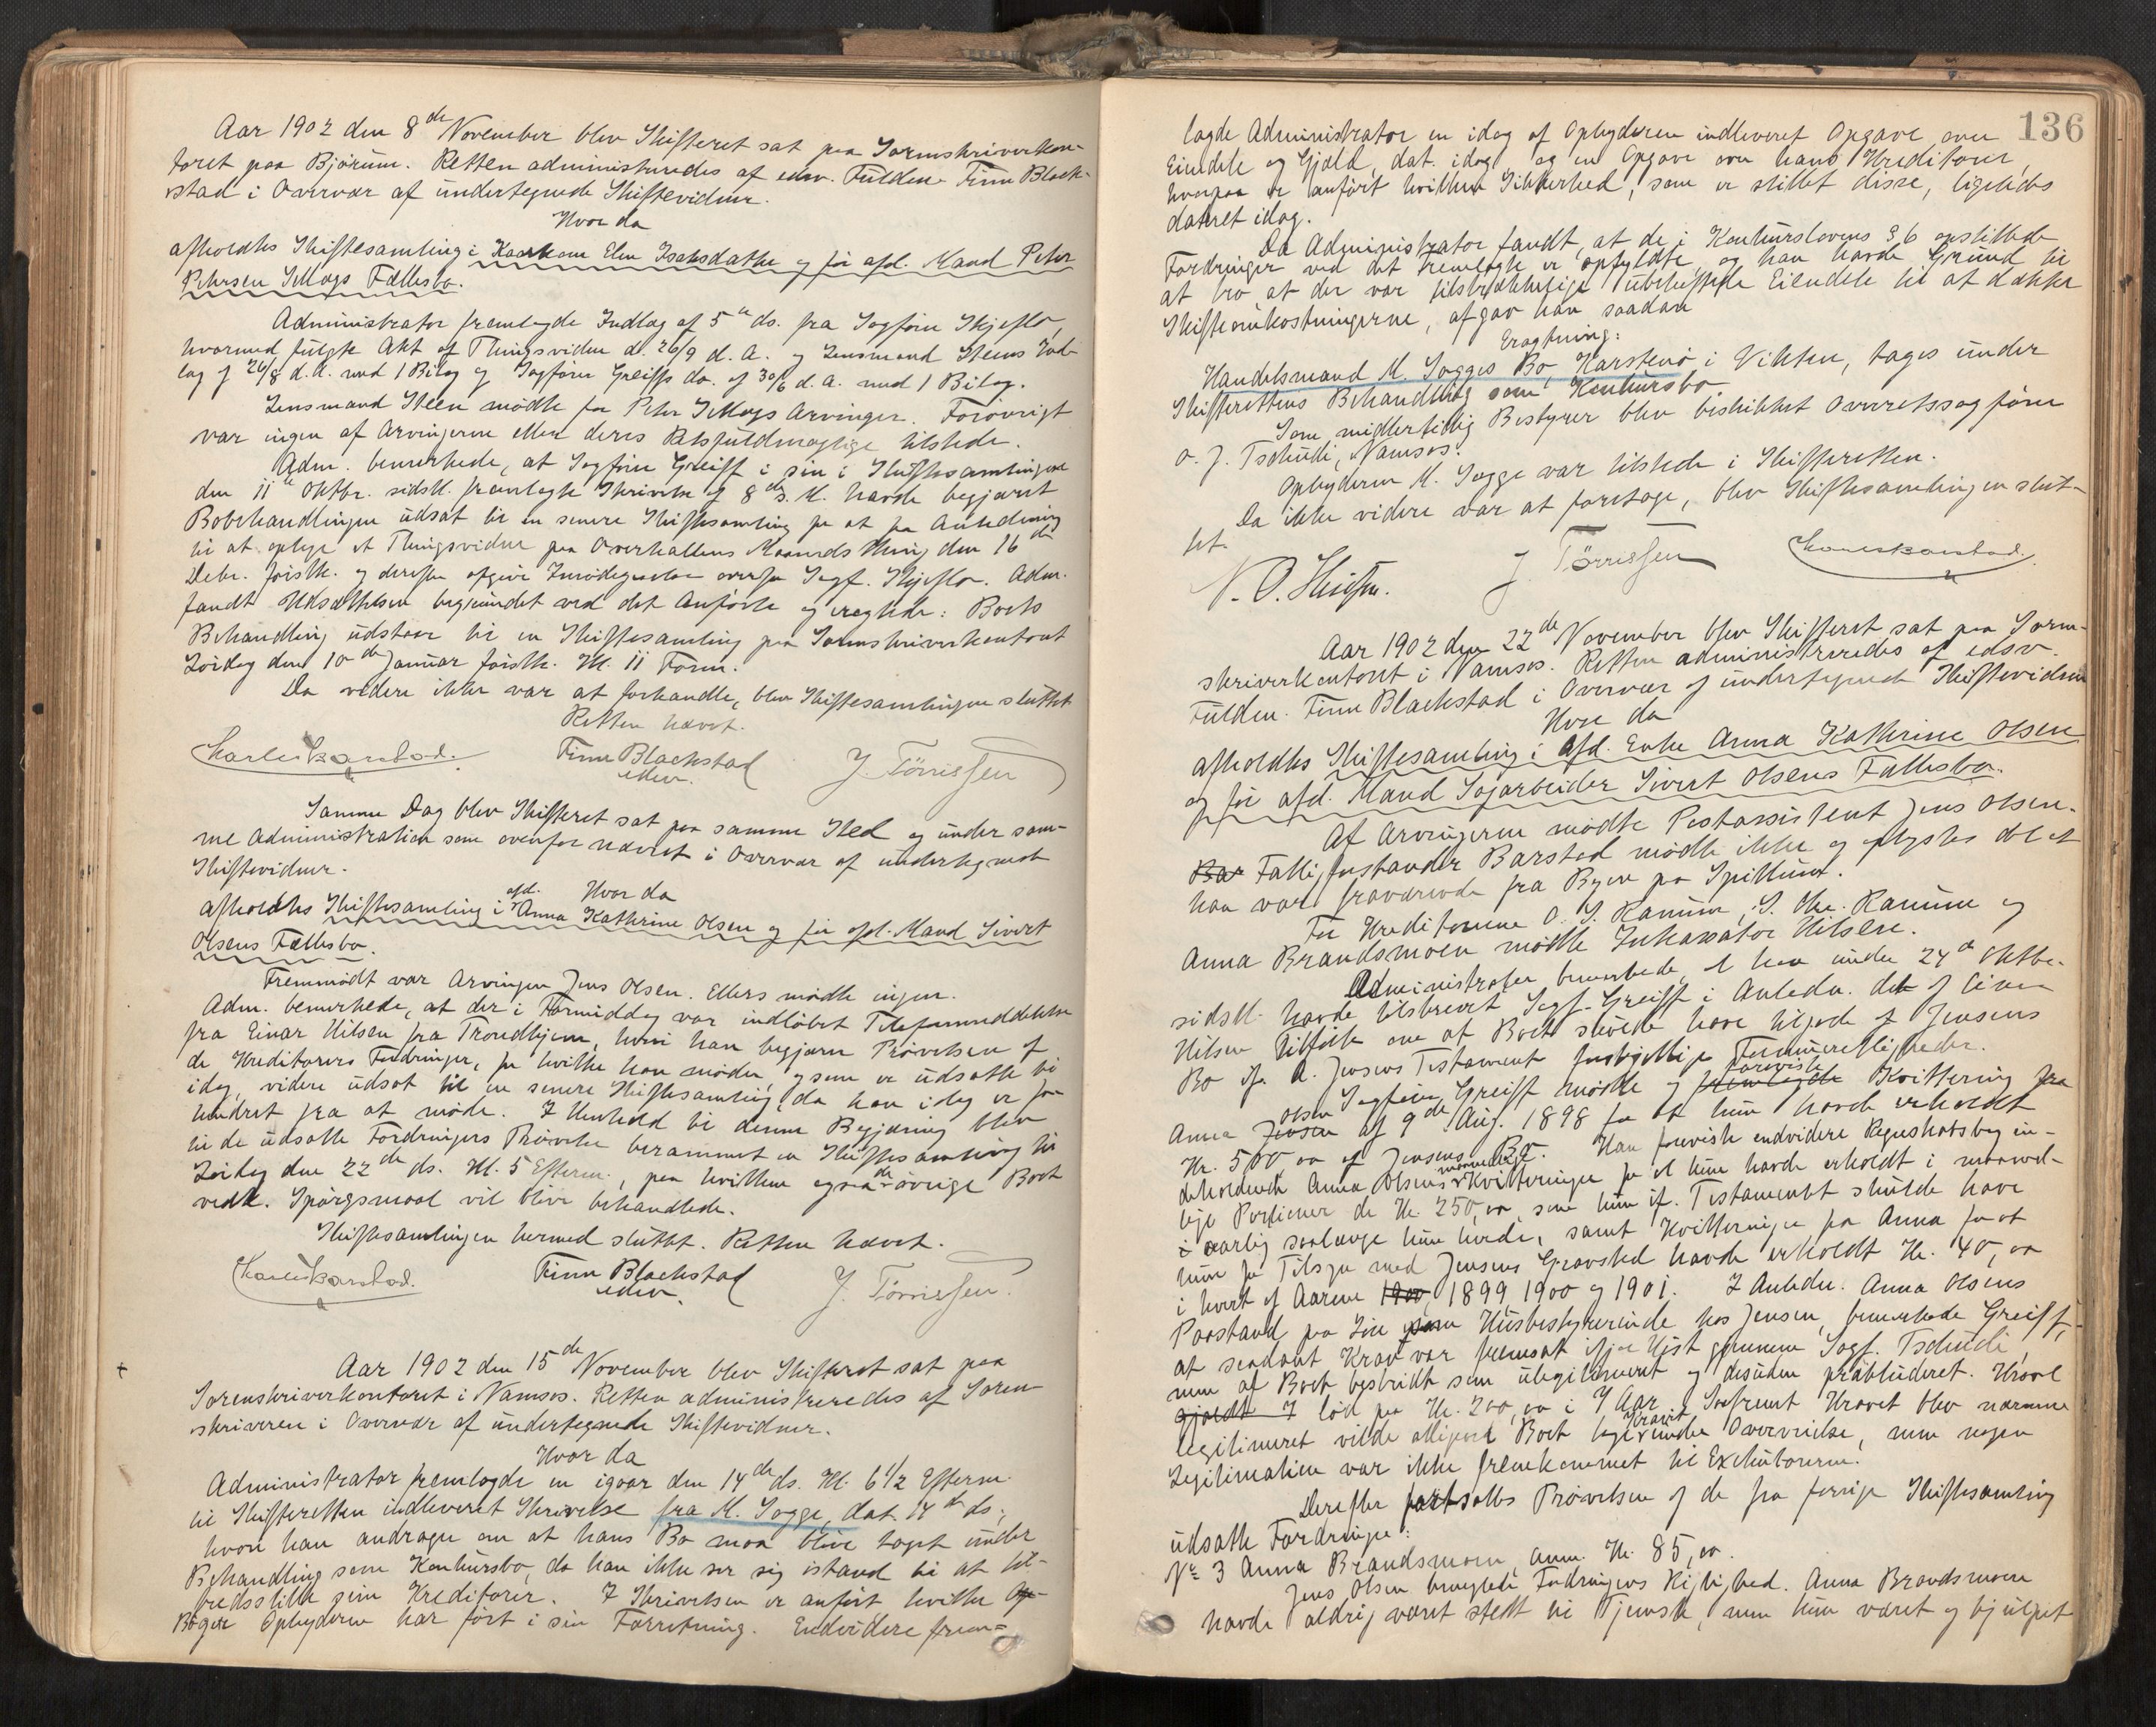 Aar 1902 den 8de November blev Skifteret sat paa Sorenskriverkon-
toret paa Bjørum. Retten administreredes af edsv. Fuldm. Finn Black-
stad i Overvær af undertegnede Skiftevidner.
Hvor da
afholdtes Skiftesamling i Kaarkone Elen Isaksdatter og før afd. Mand Peter
Petersen Selløgs Fællesbo.
Administrator fremlagde Indlæg af 5te ds. fra Sagfører Skjeflo,
hvormed fulgte Akt af Thingsvidne d. 26/9 d. A. og Lensmand Steens Ind-
læg af 26/8 d. A. med 1 Bilag og Sagfører Greiffs do. af 30/6 d. A. med 1 Bilag.
Lensmand Steen mødte for Peter Selløgs Arvinger. Forøvrigt
var ingen af Arvingerne eller deres Retsfuldmægtige tilstede.
Adm. bemærkede, at Sagfører Greiff i sin i Skiftesamlingen
den 11te Oktbr. sidstl. fremlagte Skrivelse af 8 ds. M. havde begjæret
Bobehandlingen udsat til en senere Skiftesamling for at faa Anledning
til at optage et Thingsvidne paa Overhallens Maanedsthing den 16de
Decbr. førstk. og derefter afgive Imødegaaelse overfor Sagf. Skjeflo. Adm.
fandt Udsættelsen begrundet ved det Anførte og eragtede: Boets
Behandling udstaar til en Skiftesamling paa Sorenskriverkontoret
Lørdag den 10de Januar førstk. Kl. 11 Form.
Da videre ikke var at forhandle, blev Skiftesamlingen sluttet
Retten hævet.
Karl Karstad. Finn Blackstad J. Tørrissen
edsv.
Samme Dag blev Skifteret sat paa samme Sted og under sam-
me Administration som ovenfor nævnt i Overvær af undertegnede
Skiftevidner.
Hvor da
afholdtes Skiftesamling i afd. Anna Kathrine Olsen og før afd. Mand Sivert
Olsens Fællesbo.
Fremmødt var Arvingen Jens Olsen. Ellers mødte ingen.
Adm. bemærkede, at der i Formiddag var indløbet Telefonmeddelelse
fra Einar Nilsen fra Trondhjem, hvori han begjærer Prøvelsen af
de Kreditorers Fordringer, for hvilke han møder, og som er udsatte til
idag, videre udsat til en senere Skiftesamling, da han idag er for-
hindret fra at møde. I Henhold til denne Begjæring blev
til de udsatte Fordringers Prøvelse berammet en Skiftesamling til
Lørdag den 22de ds. Kl. 5 Efterm., paa hvilken ogsaa de øvrige Boet
vedk. Spørgsmaal vil blive behandlede.
Skiftesamlingen hermed sluttet. Retten hævet.
Karl Karstad. Finn Blackstad J. Tørrissen.
edsv.
+ Aar 1902 den 15de November blev Skifteret sat paa
Sorenskriverkontoret i Namsos. Retten administreredes af Soren-
skriveren i Overvær af undertegnede Skiftevidner.
Hvor da
Administrator fremlagde en igaar den 14de ds. Kl. 6 1/2 Efterm.
til Skifteretten indleveret Skrivelse fra M. Sagge, dat. 14de ds.,
hvori han andrager om at hans Bo maa blive taget under
Behandling som Konkursbo, da han ikke ser sig istand til at til-
fredsstille sine Kreditorer. I Skrivelsen er anført hvilke Op-
Bøger Opbyderen har ført i sin Forretning. Endvidere frem-
136
lagde Administrator en idag af Opbyderen indleveret Opgave over
Eiendele og Gjæld, dat. idag, og en Opgave over hans Kreditorer,
hvorpaa er anført hvilken Sikkerhed, som er stillet disse, ligeledes
dateret idag.
Da Administrator fandt, at de i Konkurslovens § 6 opstillede
Fordringer ved det fremlagte er opfyldte, og han havde Grund til
at tro, at der var tilstrækkelige ubeheftede Eiendele til at dække
Skifteomkostningerne, afgav han saadan
Eragtning:
Handelsmand M. Sagges Bo, Karstenø i Vikten, tages under
Skifterettens Behandling som Konkursbo.
Som midlertidig Bestyrer blev beskikket Overretssagfører
O. J. Tschudi, Namsos.
Opbyderen M. Sagge var tilstede i Skifteretten.
Da ikke videre var at foretage, blev Skiftesamlingen slut-
tet.
J Tørrissen Karl Karstad.
Aar 1902 den 22de November blev Skifteret sat paa Soren-
skriverkontoret i Namsos. Retten administreredes af edsv.
Fuldm. Finn Blackstad i Overvær af undertegnede Skiftevidner
Hvor da
afholdtes Skiftesamling i afd. Enke Anna Kathrine Olsen
og før afd. Mand Sagarbeider Sivert Olsens Fællesbo.
Af Arvingerne mødte Postassistent Jens Olsen.
Bar Fattigforstander Barstad mødte ikke og oplystes det at
han var fraværende fra Byen paa Spillum.
For Kreditorerne O. S. Ranum, S. Chr. Ranum og
Anna Brandsmoen mødte Inkassator Nilsen.
Administrator bemærkede, at han under 24de Oktbr.
sidstl. havde tilskrevet Sagf. Greiff i Anledn. det af Einar
Nilsen Tilførte om at Boet skulde have tilgode af Jensens
Bo if. A. Jensens Testament forskjellige Formuerettigheder.
Sagfører Greiff mødte og fremlagde foreviste Kvittering fra
Anna Jensen Olsen af 9de Aug. 1898 for at hun havde erholdt
Kr. 500,00 af Jensens Bo. Han foreviste endvidere Regnskabsbog in-
deholdende Anna Olsens maanedlige Kvitteringer for at hun havde erholdt i maaned-
lige Portioner de Kr. 250,00, som hun if. Testamentet skulde have
i aarlig saalænge hun levde, samt Kvitteringer fra Anna for at
hun for Tilsyn med Jensens Gravsted havde erholdt Kr. 40,00
i hvert af Aarene 1900, 1899, 1900 og 1901. I Anledn. Anna Olsens
Paastand paa Løn som Husbestyrerinde hos Jensen, bemærkede Greiff,
at saadant Krav var fremsat ifjor Høst gjennem Sagf. Tschudi,
men af Boet bestridt som ulegitimeret og desuden prækluderet. Kravet
gjældt I lød paa Kr. 200,00 i 7 Aar. Saafremt Kravet blev nærmere
legitimeret vilde alligevel Boet tage Kravet under Overveielse, men nogen
Legitimation var ikke fremkommet til Exekutorerne.
Derefter fortsattes Prøvelsen af de fra forrige Skiftesamling
udsatte Fordringer:
No 3 Anna Brandsmoen, anm. Kr. 85,00.
Jens Olsen benægtede Fordringens Rigtighed. Anna Brandsmoen
havde aldrig været stedt til Tjeneste, men hun været og hjulpet